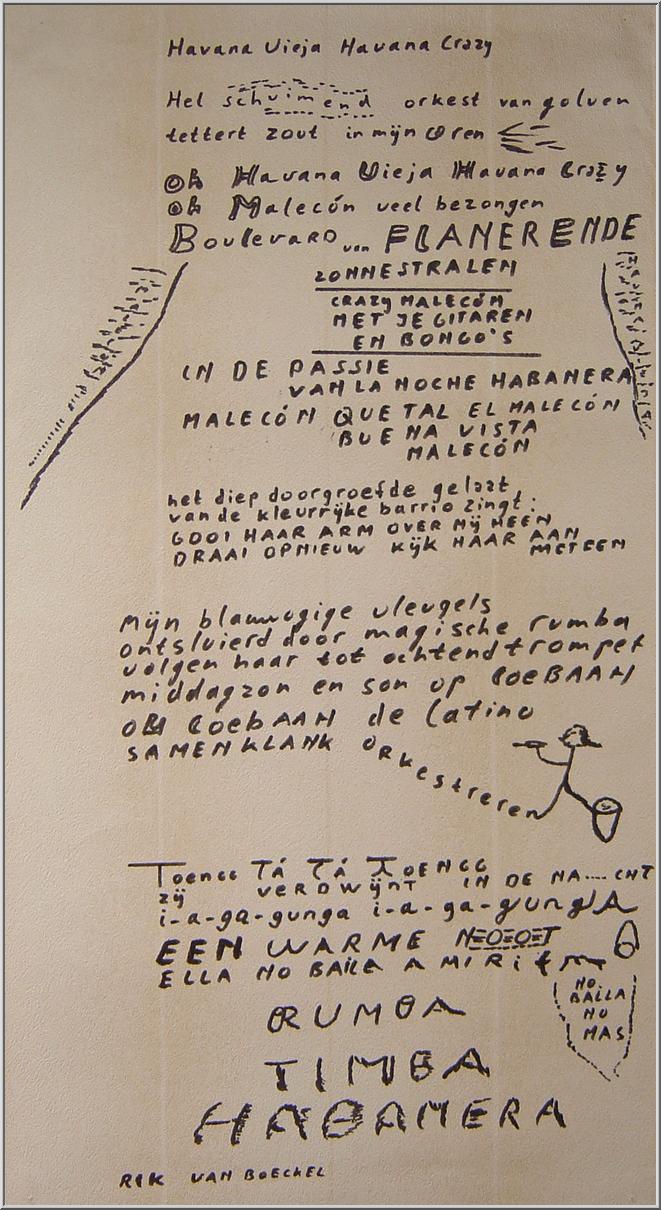 Havana Vieja Havana Crazy
Het schuimend orkest van golven
tettert zout in mijn oren
oh Havana Vieja Havana Crazy
oh Malecón veel bezongen
Boulevard... FLANERENDE
ZONNESTRALEN
CRAZY MALECÓN
MET JE GITAREN
EN BONGO'S
IN DE PASSIE
VAN LA NOCHE HABANERA
MALECÓN QUE TAL EL MALECÓN
BUENA VISTA
MALECÓN
het diep doorgroefde gelaat
van de kleurrijke barrio zingt:
GOOI HAAR ARM OVER MIJ HEEN
DRAAI OPNIEUW KIJK HAAR AAN
METEEN
Mijn blauwogige vleugels
ontsluierd door magische rumba
volgen haar tot ochtendtrompet
middagzon en son op COEBAAN
OH COEBAAN de Latino
SAMENKLANK ORKestreren
TOENGG TÁ TÁ TOENGG
zij VERDWIJNT IN DE NA....CHT
i-a-ga-gunga i-a-ga-gungA
EEN WARME
ELLA NO BAILA A MI Ritm
NO
BAILA
NO
MAS
RUMBA
TIMBA
HABANERA
RIK VAN BOECKEL